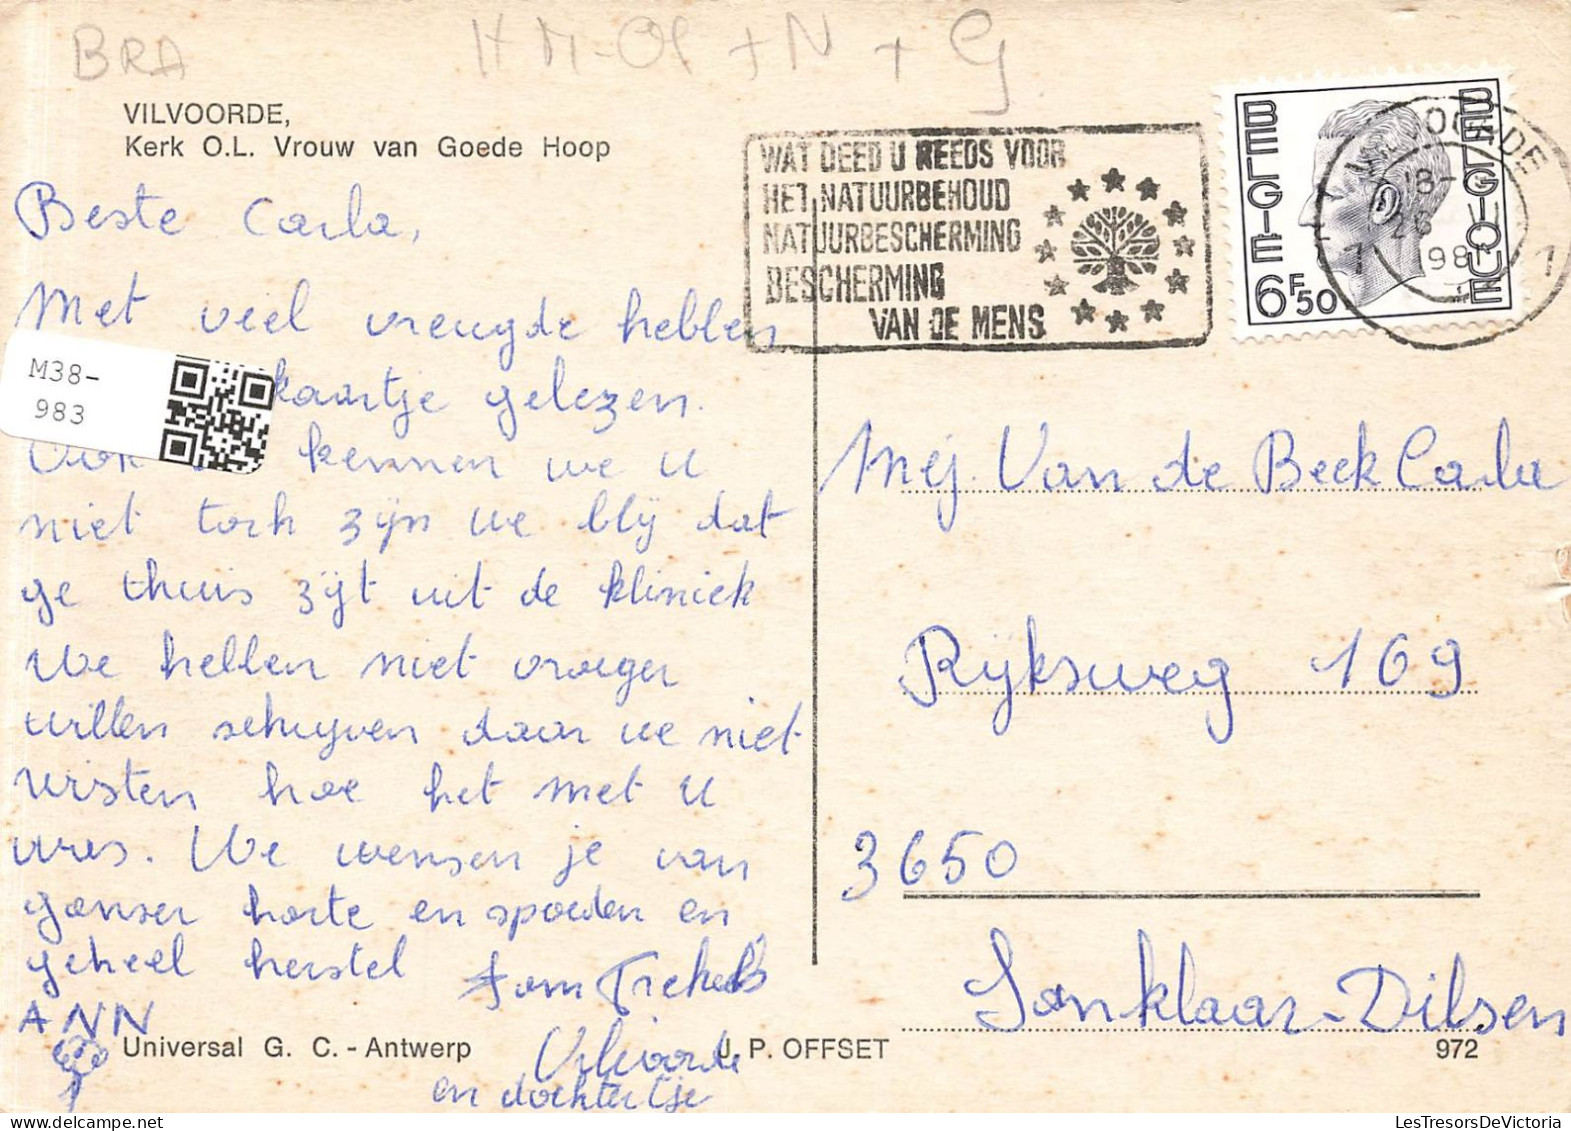 BRA
HM-Ol + N + G
VILVOORDE,
Kerk O.L. Vrouw van Goede Hoop
WAT DEED U REEDS VOOR
HET NATUURBEHOUD
NATUURBESCHERMING
BESCHERMING
VAN DE MENS
BELGIE
BELGIQUE
6F50
1 1
Beste Carla,
Met veel vreugde hebben
kaartje gelezen.
M38-
983
Ook kennen we u
niet toch zijn we blij dat
ge thuis zijt uit de kliniek
We hebben niet vroeger
willen schrijven daar we niet
wisten hoe het met u
was. We wensen je van
ganser harte en spoeden en
geheel herstel
ANN
Fam
Vilvoorde
en dochtertje
Mej. Van de Beek Carla
Rijksweg 169
3650
Lanklaar-Dilsen
Universal G. C. - Antwerp
J. P. OFFSET
972
LesTresorsDeVictoria
delcampe.net